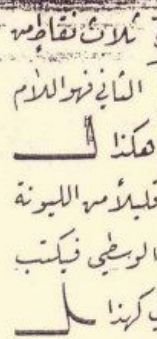 ثلاث نقاط من
الثاني فهو اللام
هكذا
قليلاً من الليونة
الوسطى فيكتب
كهذا